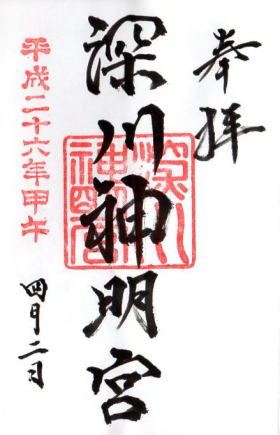 奉拝
深川神明宮
深川
神明宮
平成二十六年甲午
四月二日